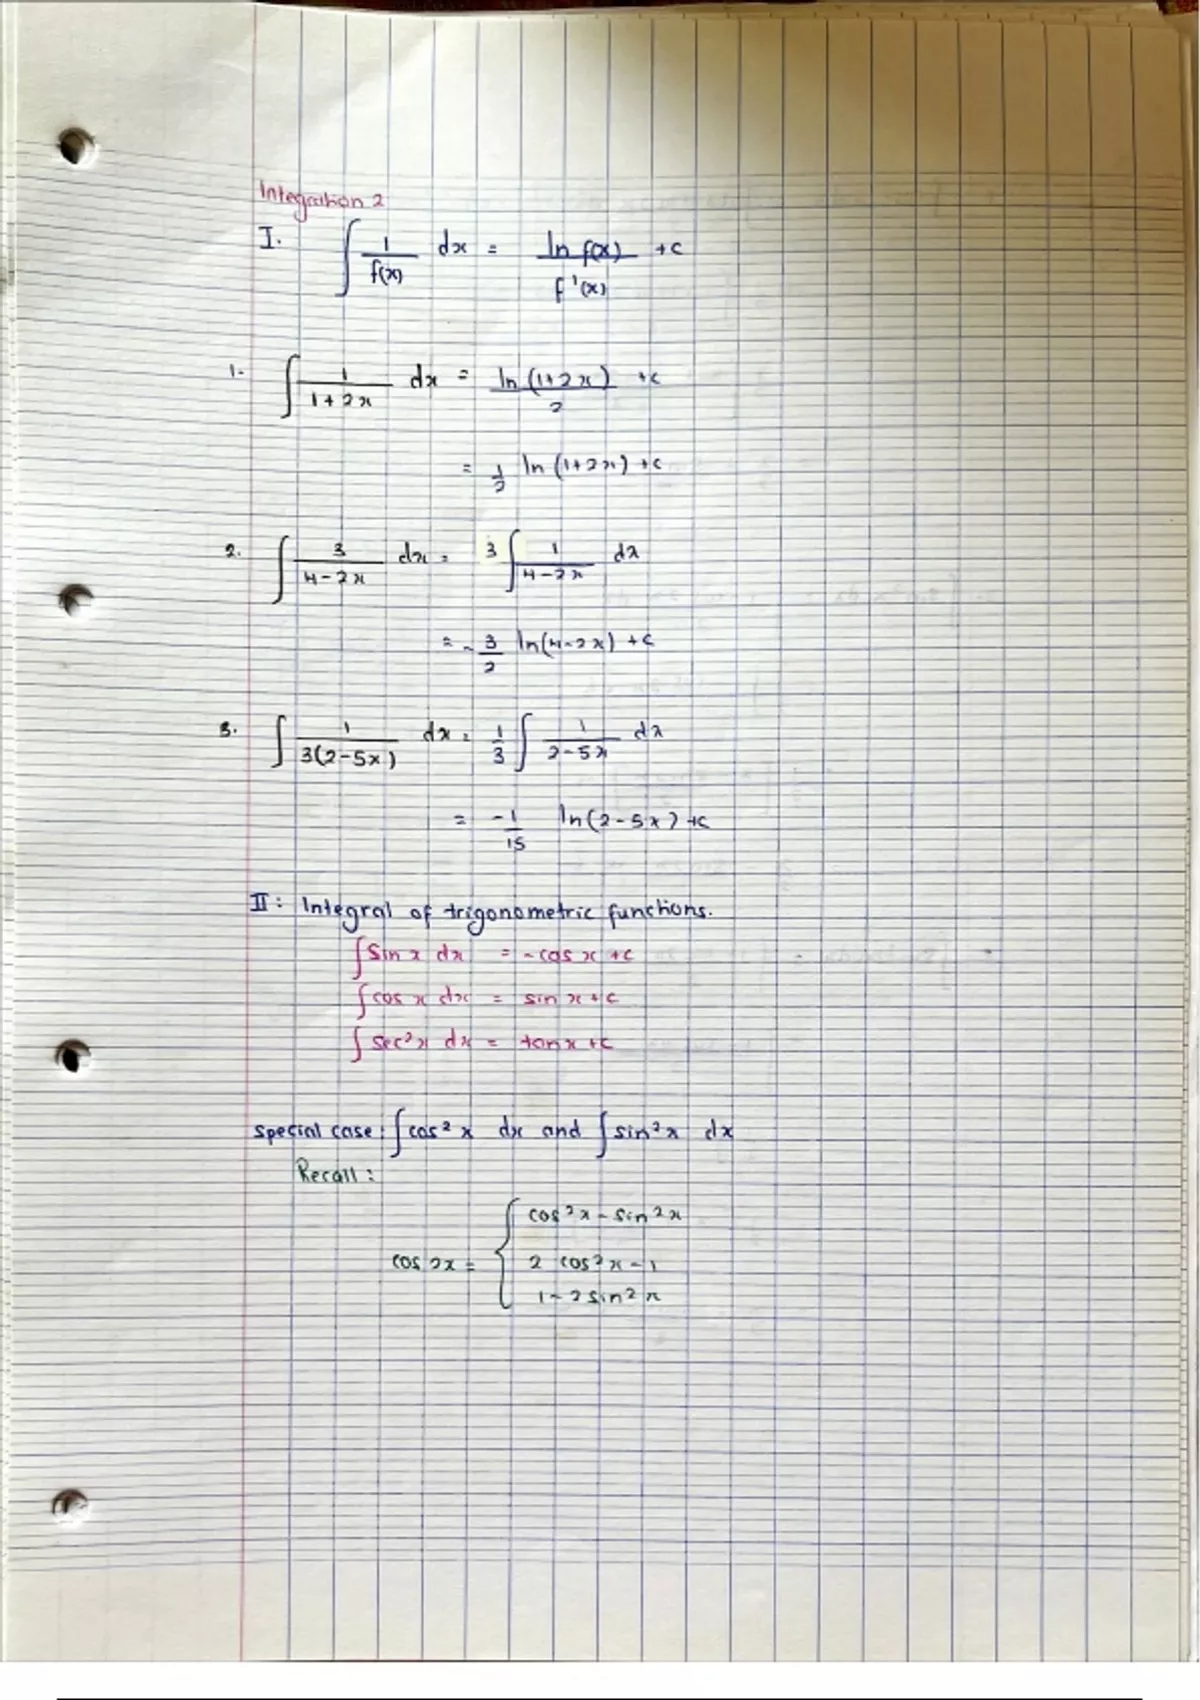 Integration 2
I. ∫ 1/f(x) dx = ln f(x)/f'(x) +c
1. ∫ 1/(1+2x) dx = ln (1+2x)/2 +c
= 1/2 ln (1+2x) +c
2. ∫ 3/(4-2x) dx = 3 ∫ 1/(4-2x) dx
= - 3/2 ln(4-2x) +c
3. ∫ 1/(3(2-5x)) dx = 1/3 ∫ 1/(2-5x) dx
= -1/15 ln(2-5x) +c
II: Integral of trigonometric functions.
∫ Sin x dx = - cos x +c
∫ cos x dx = sin x + c
∫ sec²x dx = tan x +c
special case: ∫ cos² x dx and ∫ sin² x dx
Recall:
cos²x - sin²x
cos 2x = { 2 cos²x - 1
1 - 2 sin² x